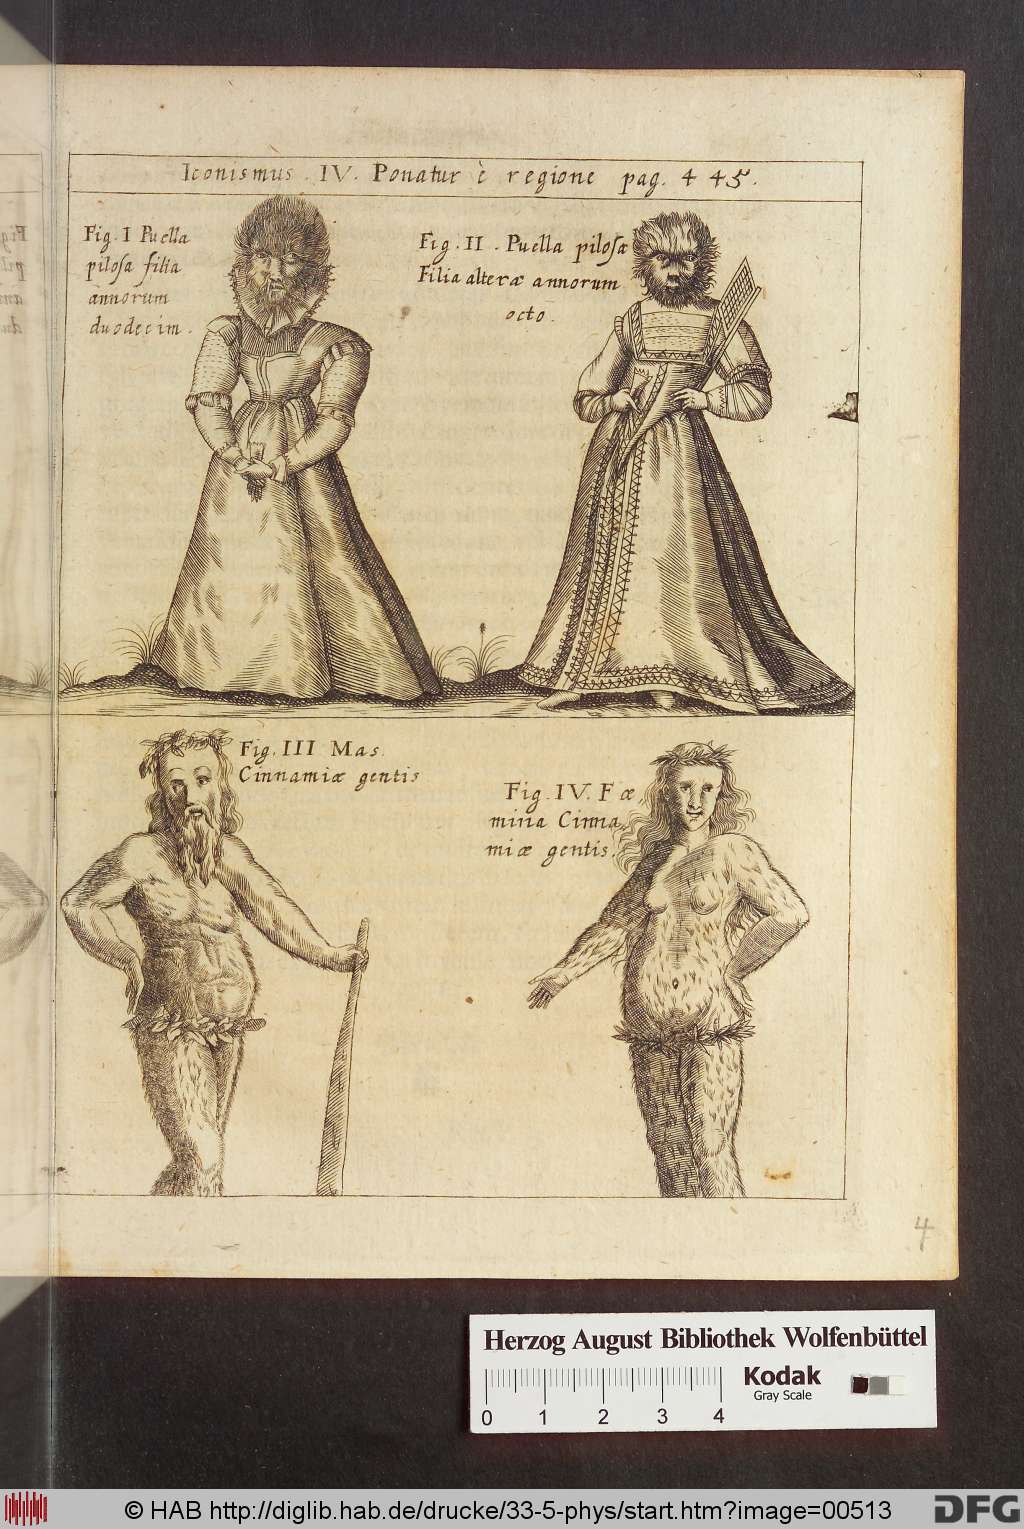 Iconismus . IV. Ponatur è regione pag. 445.
Fig. I Puella
piloſa filia
annorum
duodecim.
Fig. II. Puella piloſæ
Filia alteræ annorum
octo.
Fig. III Mas.
Cinnamiæ gentis
Fig. IV. Fæ,
mina Cinna,
miæ gentis.
4
Herzog August Bibliothek Wolfenbüttel
Kodak
Gray Scale
0 1 2 3 4
© HAB http://diglib.hab.de/drucke/33-5-phys/start.htm?image=00513
DFG